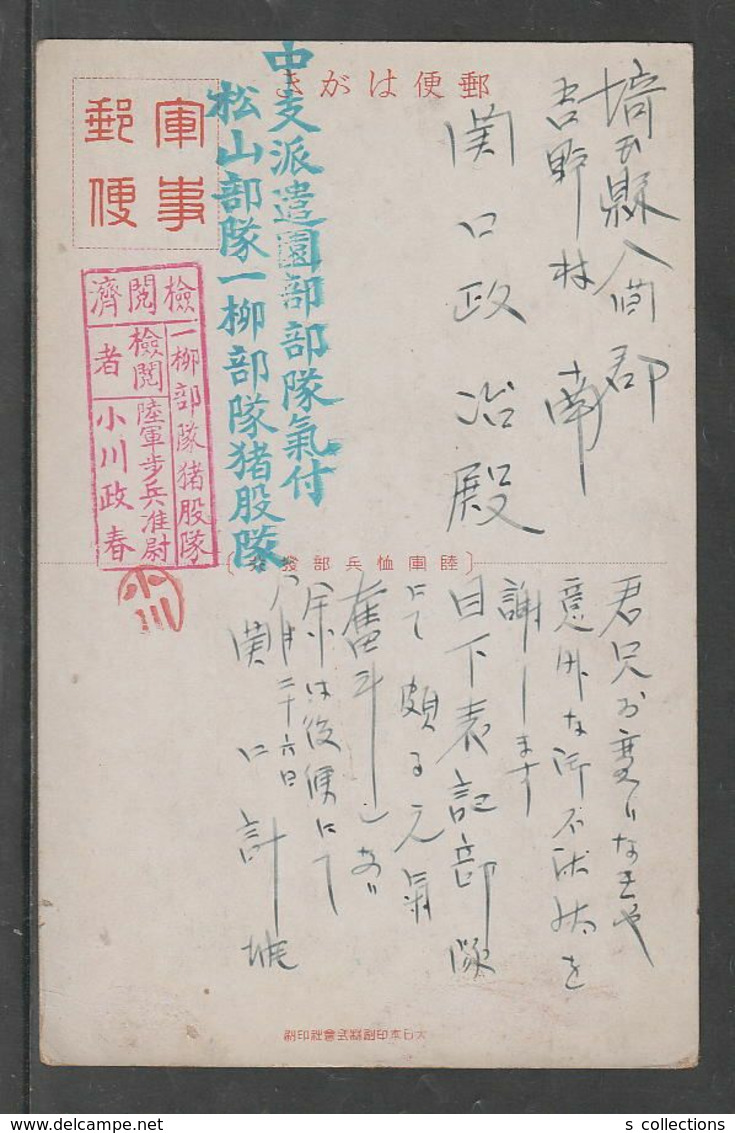 郵便はがき
軍事
郵便
埼玉縣入間郡
吉野村 南
関口政治殿
中支派遣園部部隊氣付
松山部隊一柳部隊猪股隊
檢閲濟
一柳部隊猪股隊
檢閲者
陸軍步兵准尉
小川政春
小川
陸軍恤兵部發行
君兄お変りなきや
意外な御不沙汰を
謝します
目下表記部隊
にて頗る元氣
奮斗しあり
余は後便にて
八月二十六日
関口計
大日本印刷株式會社印刷
s collections
delcampe.net